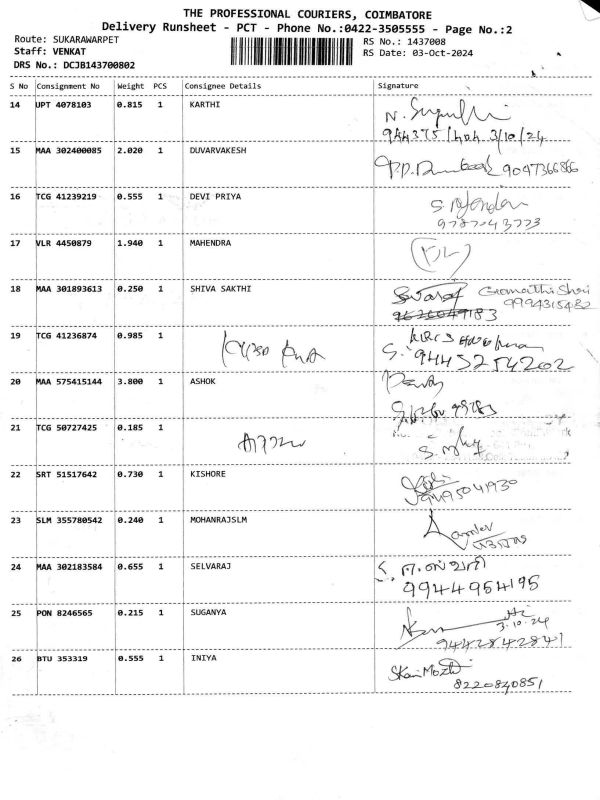 THE PROFESSIONAL COURIERS, COIMBATORE
Delivery Runsheet - PCT - Phone No.:0422-3505555 - Page No.:2
Route: SUKARAWARPET
RS No.: 1437008
Staff: VENKAT
RS Date: 03-Oct-2024
DRS No.: DCJB143700802
S No Consignment No Weight PCS Consignee Details Signature
14 UPT 4078103 0.815 1 KARTHI
3/10/24
15 MAA 302400085 2.020 1 DUVARVAKESH
9047366866
16 TCG 41239219 0.555 1 DEVI PRIYA
9787043773
17 VLR 4450879 1.940 1 MAHENDRA
18 MAA 301893613 0.250 1 SHIVA SAKTHI
9994315482
19 TCG 41236874 0.985 1
9445254202
20 MAA 575415144 3.800 1 ASHOK
21 TCG 50727425 0.185 1
22 SRT 51517642 0.730 1 KISHORE
9495041930
23 SLM 355780542 0.240 1 MOHANRAJSLM
24 MAA 302183584 0.655 1 SELVARAJ
9944954195
25 PON 8246565 0.215 1 SUGANYA
3.10.24
9442842841
26 BTU 353319 0.555 1 INIYA
8220840851